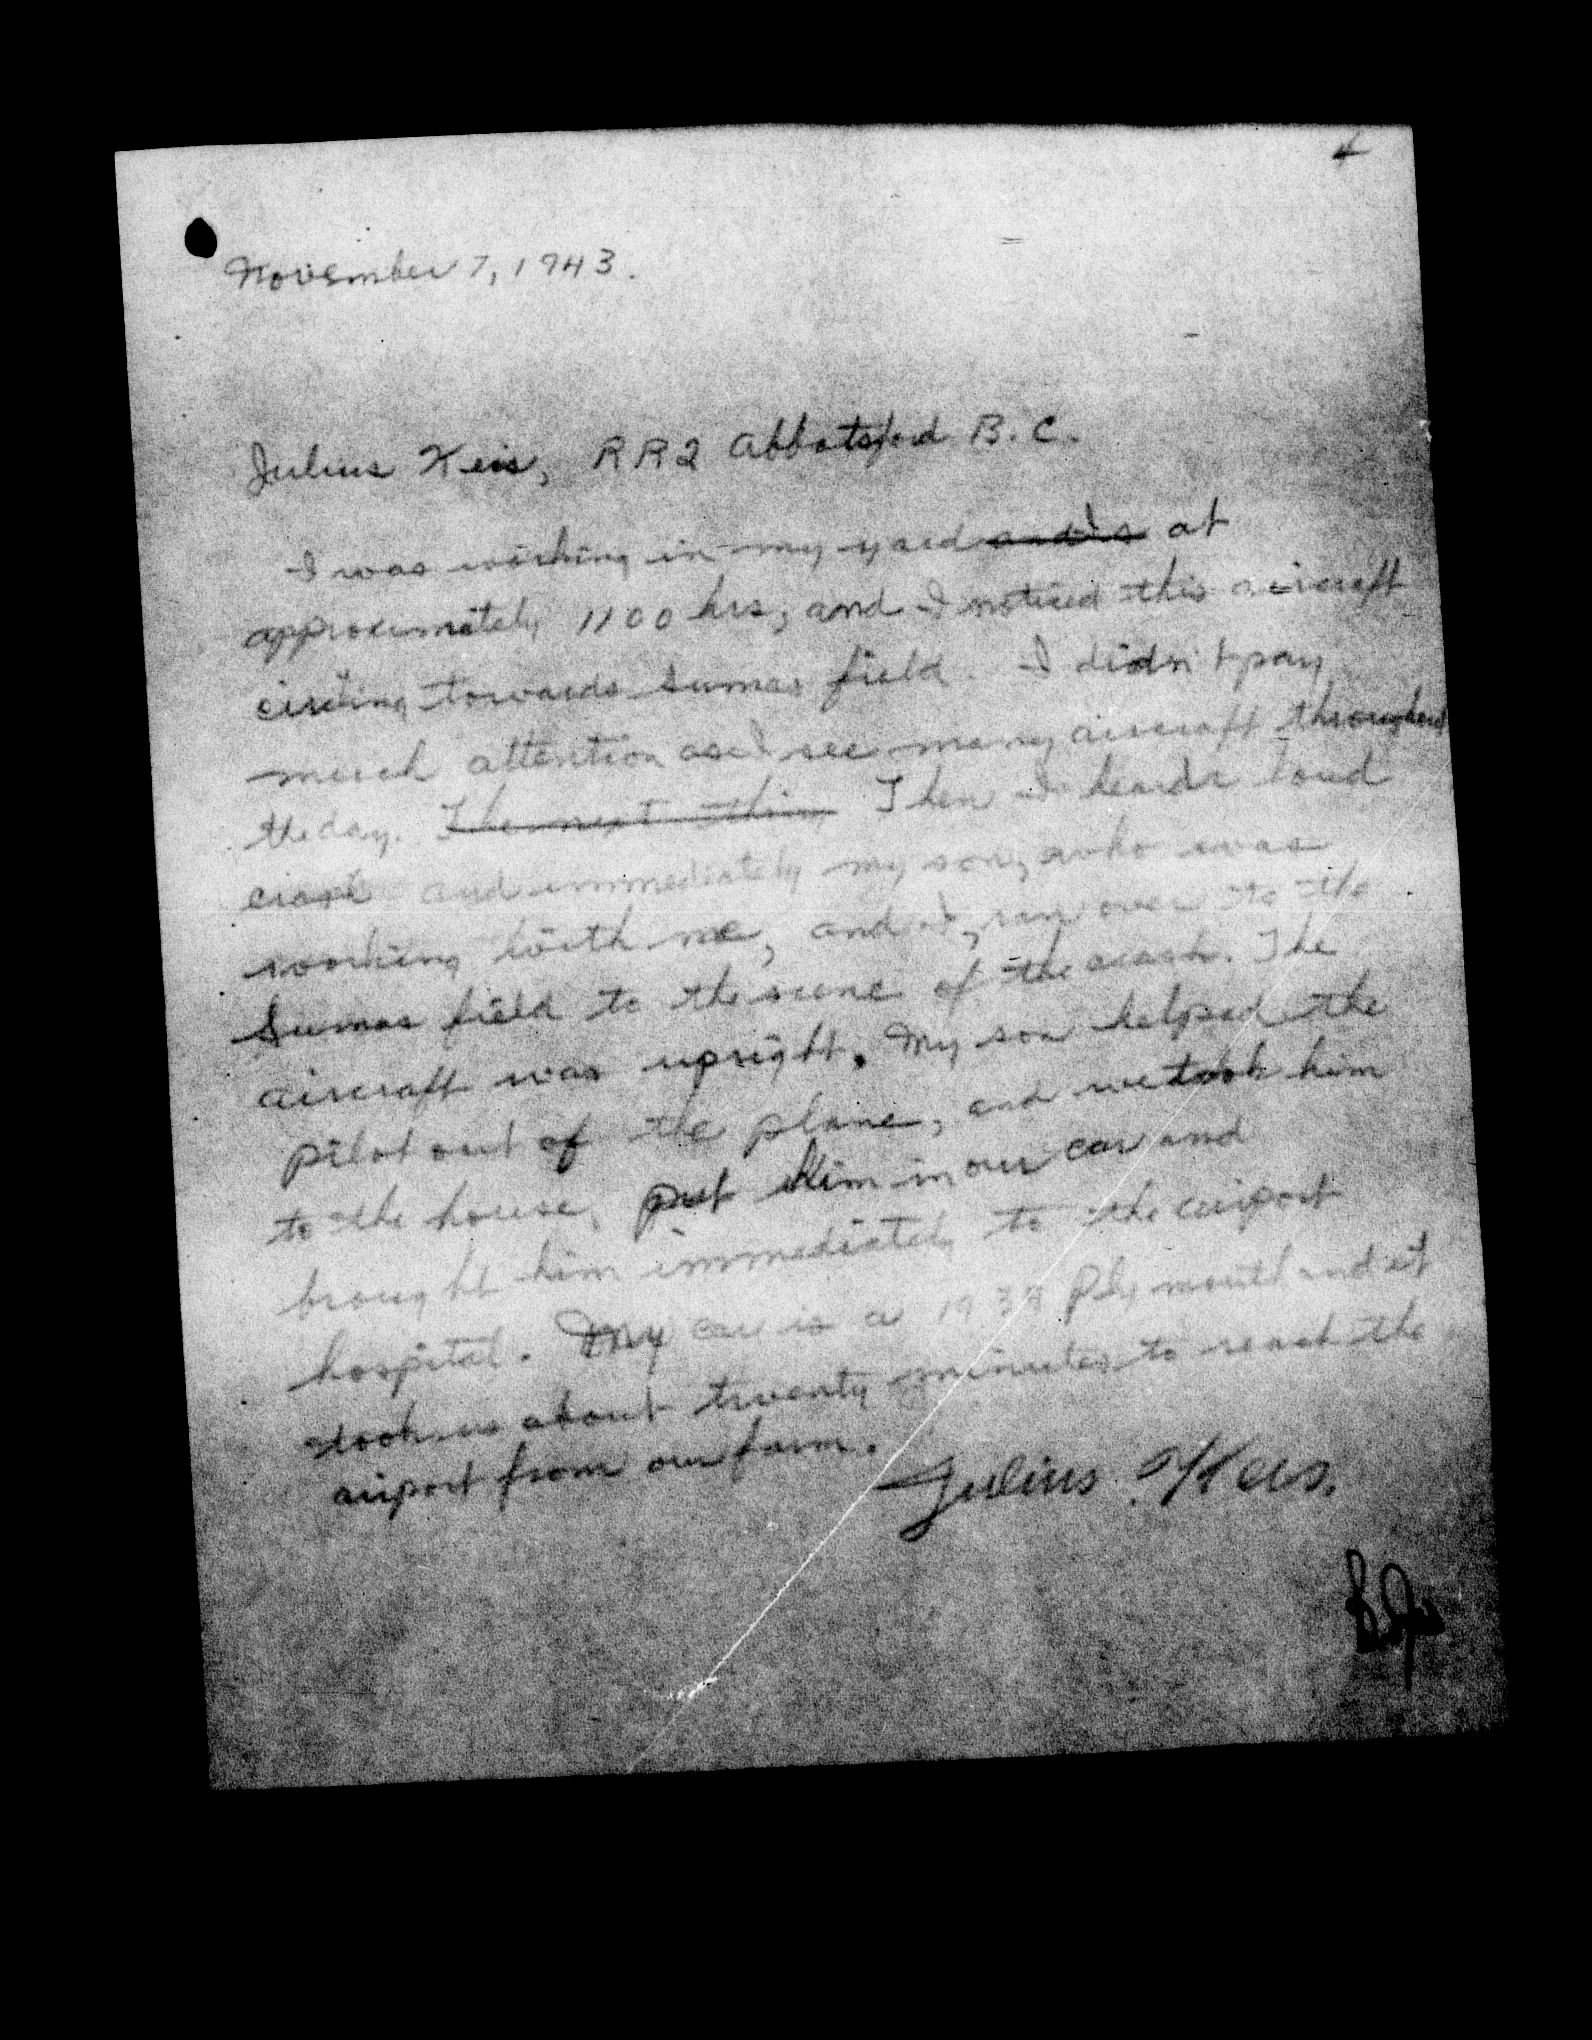 4
November 7, 1943.
Julius Keis, RR2 Abbotsford B.C.
I was working in my yard at
approximately 1100 hrs, and I noticed this aircraft
circling towards Sumas field. I didn't pay
much attention as I see many aircraft throughout
the day. The next thing Then I heard a loud
crash and immediately my son, who was
working with me, and I, ran over to the
Sumas field to the scene of the crash. The
aircraft was upright. My son helped the
pilot out of the plane, and we took him
to the house, put him in our car and
brought him immediately to the airport
hospital. My car is a Plymouth and it
took us about twenty minutes to reach the
airport from our farm.
Julius Keis.